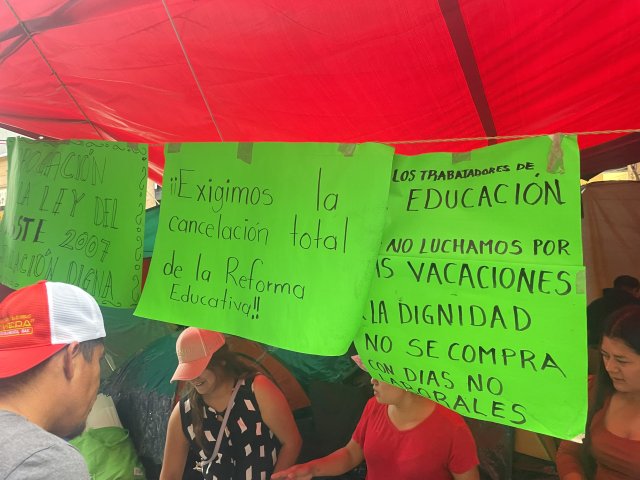 OGACIÓN
LA LEY DEL
STE 2007
ACIÓN DIGNA
¡¡Exigimos la
cancelación total
de la Reforma
Educativa!!
LOS TRABAJADORES DE
EDUCACIÓN
NO LUCHAMOS POR
S VACACIONES
LA DIGNIDAD
NO SE COMPRA
CON DIAS NO
LABORALES